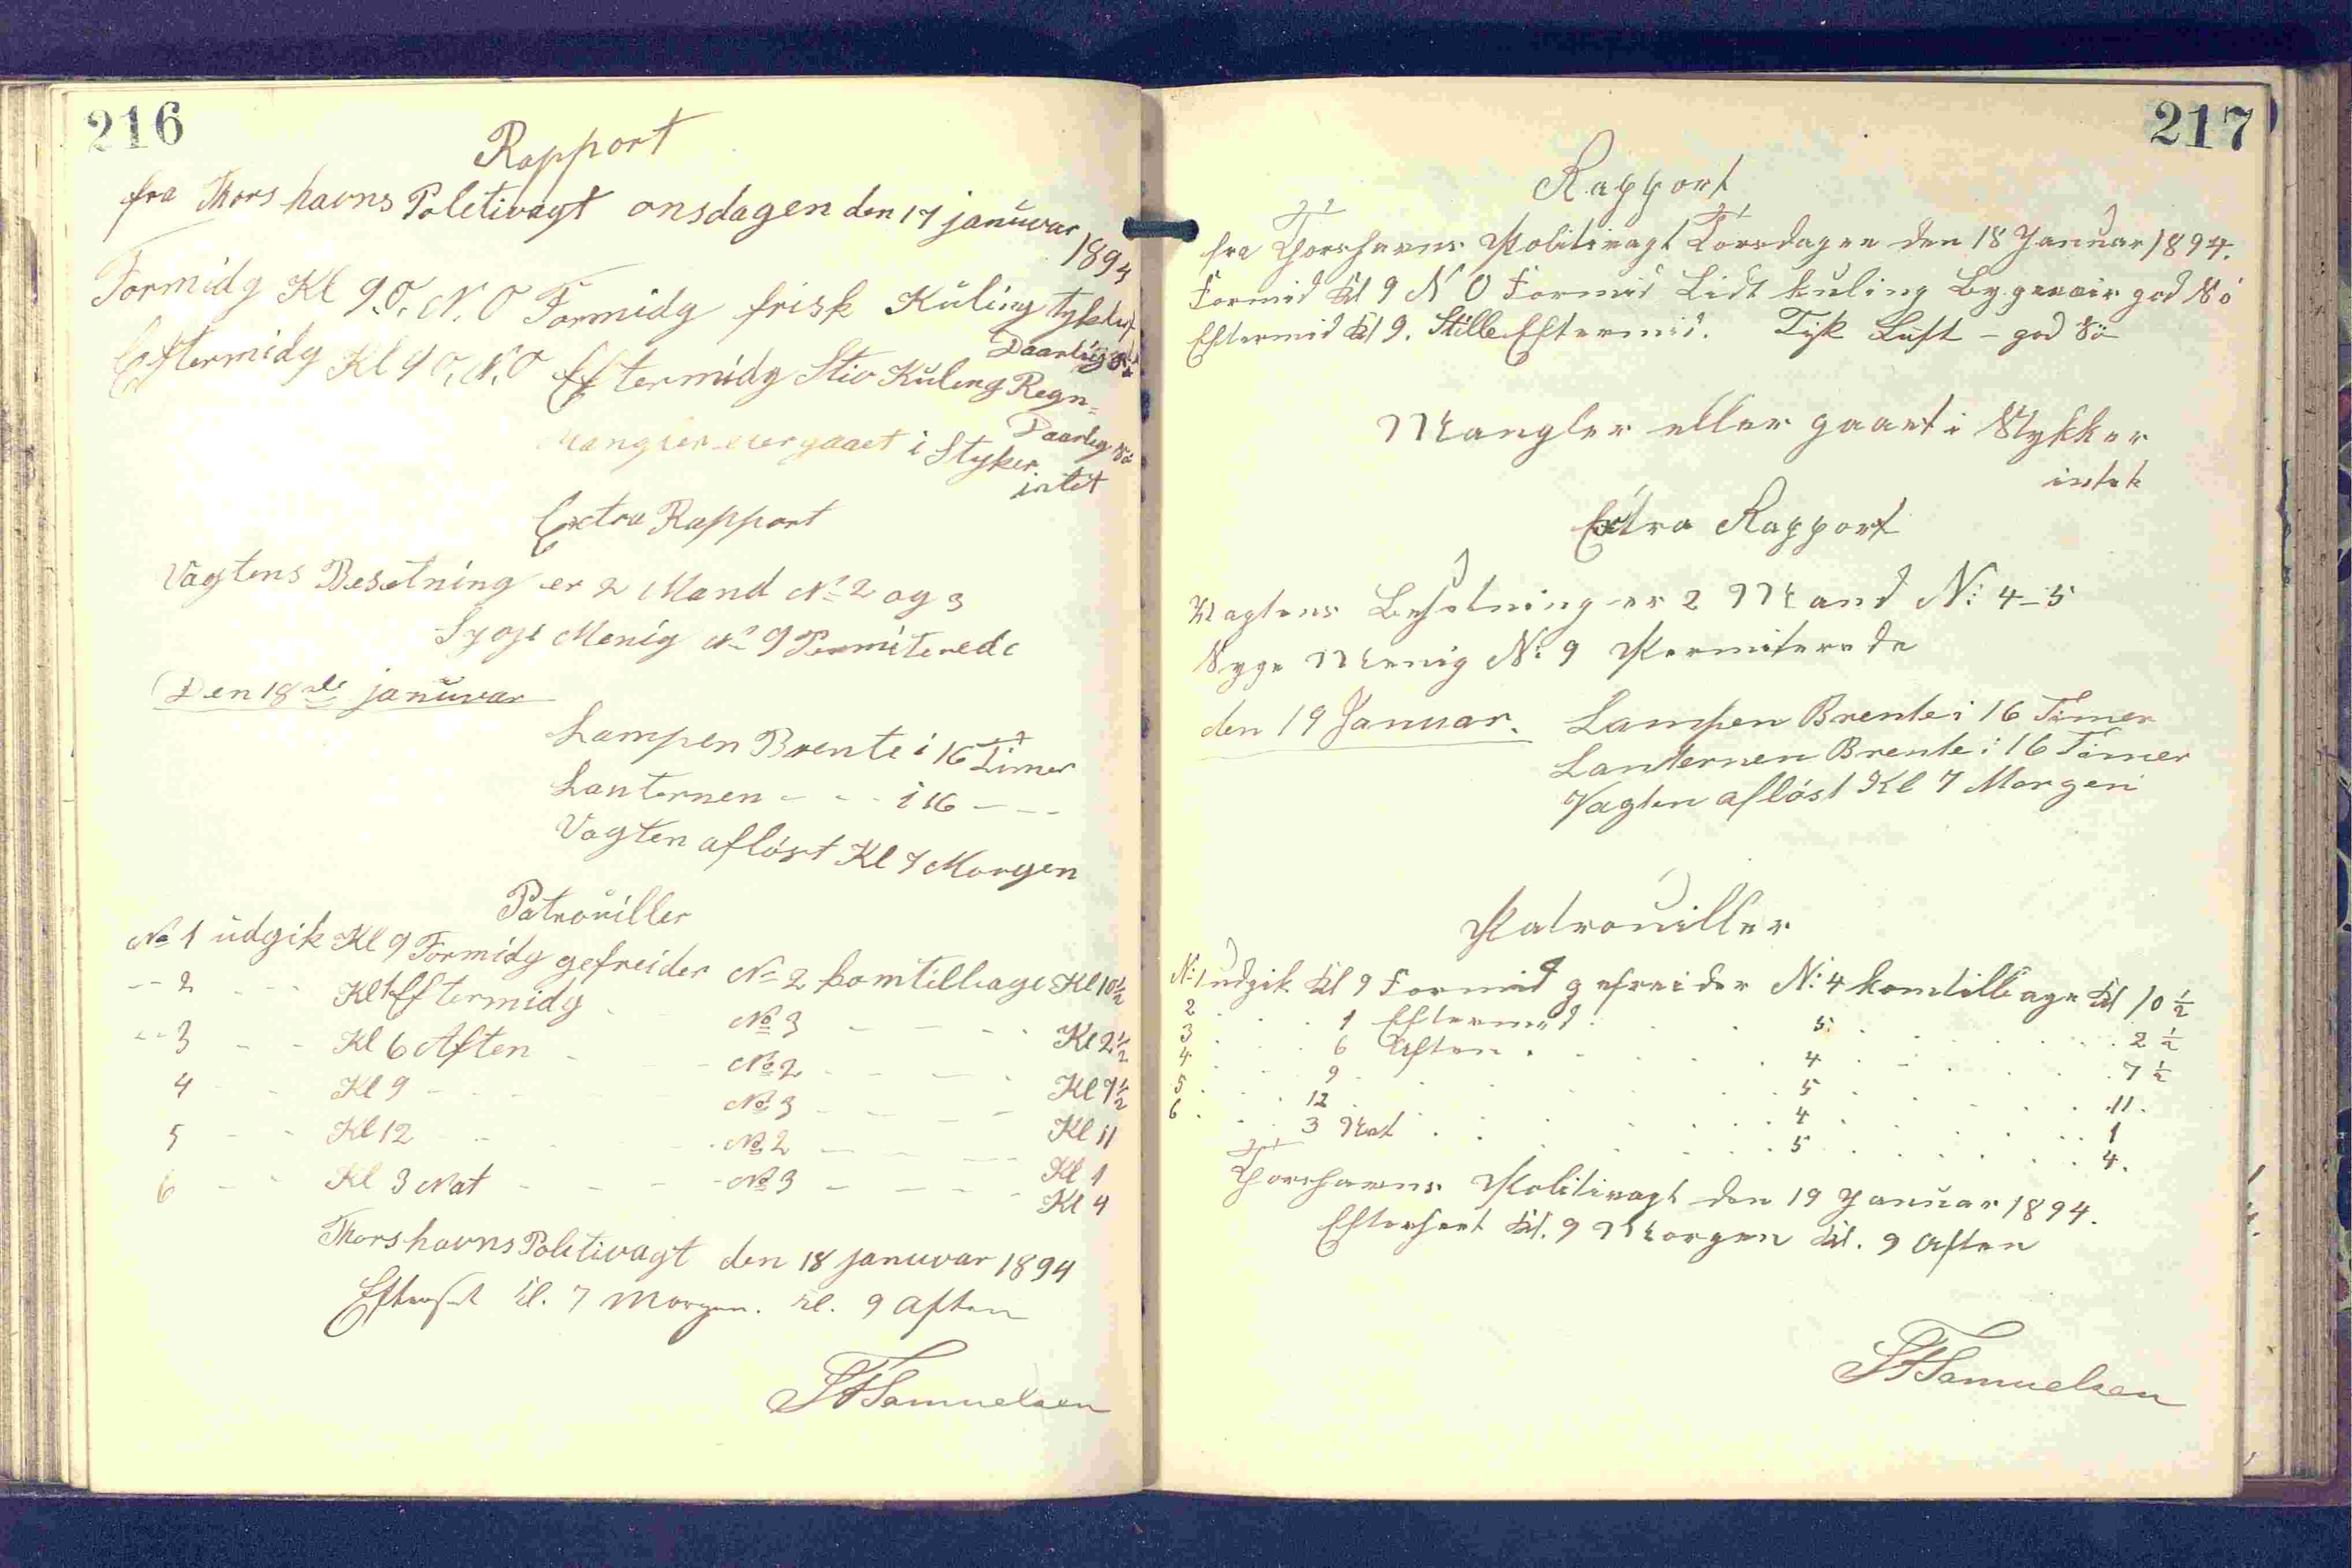 216
Rapport
fra Thorshavns Poletivagt onsdagen den 17 januvar
1894
Formidg Kl 9 O. N. O Formidg frisk Kuling tykluft
Daarlig Sö
Eftermidg Kl 9 O. N. O Eftermidg Stiv Kuling Regn-
Daarlig Sö
Mangler eler gaaet i Styker.
intet
Extra Rapport
Vagtens Besetning er 2 Mand No 2 og 3
Syge Menig No 9 Permiterede
Den 18de januvar
Lampen Brente i 16 Timer
Lanternen - - - i 16 - - -
Vagten aflöst Kl 7 Morgen
Patrouiller
No 1 udgik Kl 9 Formidg gefreider No 2 komtilbage Kl 10½
-- 2 - - - Kl 1 Eftermidg - - No 3 - - - - Kl 2½
-- 3 - - Kl 6 Aften - - - No 2 - - - - Kl 7½
4 - - Kl 9 - - - - No 3 - - - Kl 11
5 - - Kl 12 - - - No 2 - - - - Kl 1
6 - - Kl 3 Nat - - - - No 3 - - - - Kl 4
Thorshavns Poletivagt den 18 januvar 1894
Efterset Kl. 7 Morgen. Kl. 9 Aften
Samuelsen
217
Rapport
fra Thorshavns Politivagt Torsdagen den 18 Januar 1894.
Formid Kl 9 N O Formid Lidt kuling Bygevair god Sö
Eftermid Kl 9. Stille Eftermid. Tyk Luft - god Sö
Mangler eller gaaet i Stykker
intet
Extra Rapport
Vagtens Besetning er 2 Mand N: 4-5
Syge Menig N: 9 Permiterede
den 19 Januar. Lampen Brente i 16 Timer
Lanternen Brente i 16 Timer
Vagten aflöst Kl 7 Morgen
Patrouiller
N: 1 udgik Kl 9 Formid gefreider N: 4 komtilbage Kl 10½
2 . . . 1 Eftermid . . . 5: . . . . 2½
3 . . . 6 Aften . . . 4 . . . . 7½
4 . . . 9 . . . 5 . . . . 11.
5 . . . 12 . . . 4 . . . . 1
6 . . . 3 Nat . . . 5 . . . . 4.
Thorshavns Politivagt den 19 Januar 1894.
Efterset Kl. 9 Morgen Kl. 9 Aften
Samuelsen